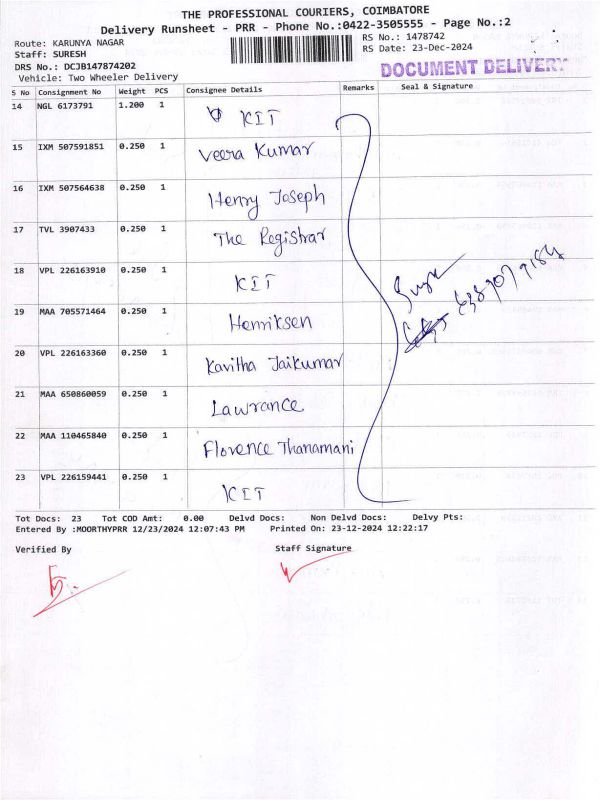 THE PROFESSIONAL COURIERS, COIMBATORE
Delivery Runsheet - PRR - Phone No.:0422-3505555 - Page No.:2
Route: KARUNYA NAGAR RS No.: 1478742
Staff: SURESH RS Date: 23-Dec-2024
DRS No.: DCJB147874202 DOCUMENT DELIVERY
Vehicle: Two Wheeler Delivery
S No Consignment No Weight PCS Consignee Details Remarks Seal & Signature
14 NGL 6173791 1.200 1 KIT
15 IXM 507591851 0.250 1 Veera Kumar
16 IXM 507564638 0.250 1 Henry Joseph
17 TVL 3907433 0.250 1 The Registrar
18 VPL 226163910 0.250 1 KIT
19 MAA 705571464 0.250 1 Henriksen
20 VPL 226163360 0.250 1 Kavitha Jaikumar
21 MAA 650860059 0.250 1 Lawrance
22 MAA 110465840 0.250 1 Florence Thanamani
23 VPL 226159441 0.250 1 KIT
Tot Docs: 23 Tot COD Amt: 0.00 Delvd Docs: Non Delvd Docs: Delvy Pts:
Entered By :MOORTHYPRR 12/23/2024 12:07:43 PM Printed On: 23-12-2024 12:22:17
Verified By Staff Signature